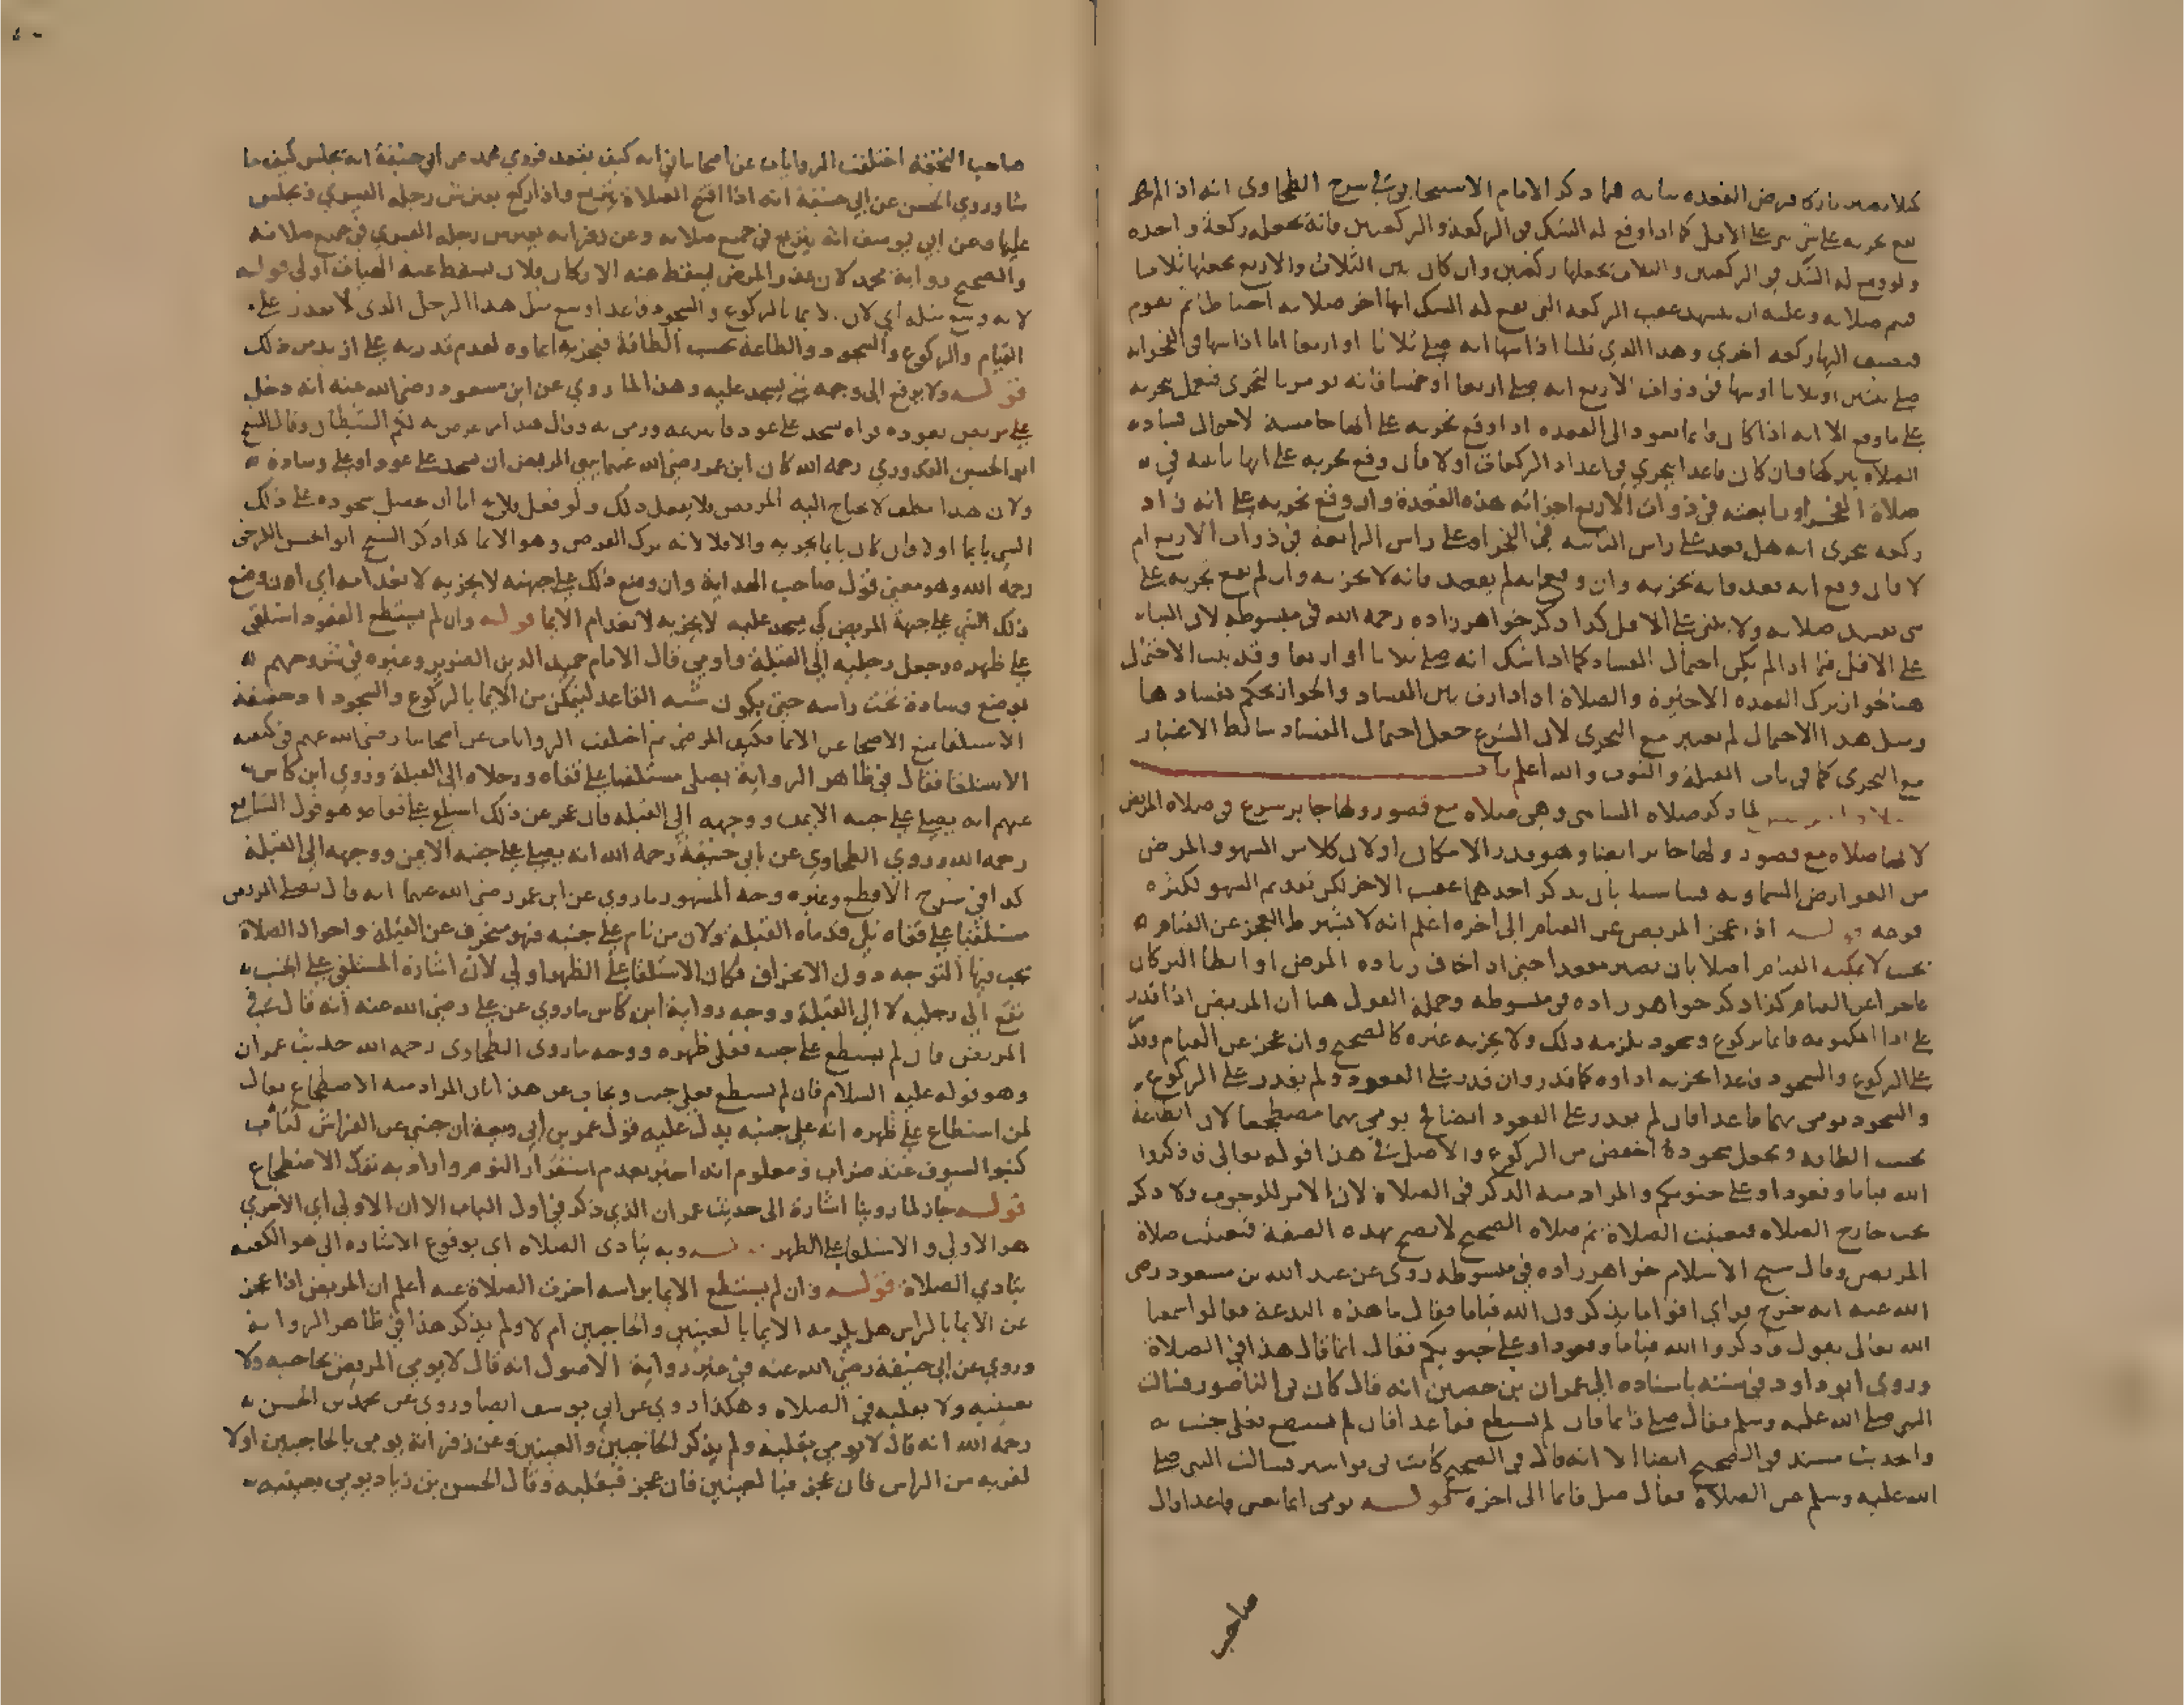 كيلا يصير تاركا فرض القعدة بيانه فيما ذكر الامام الاسبيجابي في شرح الطحاوي انه اذا لم
يقع تحريه على شي بنى على الاقل كما اذا وقع له الشك في الركعة والركعتين فانه يجعله ركعة واحدة
ولو وقع له الشك في الركعتين والثلاث يجعلها ركعتين وان كان بين الثلاث والاربع يجعلها ثلاثا
فيتم صلاته وعليه ان يتشهد عقيب الركعة التي يقع له الشك انها اخر صلاته احتياطا ثم يقوم
فيضيف اليها ركعة اخري وهذا الذي قلنا اذا شك انه صلى ثلاثا او اربعا اما اذا شك في الفجر انه
صلى ثنتين او ثلاثا او شك في ذوات الاربع انه صلى اربعا او خمسا فانه يومر بالتحرى فيعمل بتحريه
على ما وقع الا انه اذا كان قائما يعود الى القعدة اذا وقع تحريه على انها خامسة لاحتمال فساده
الصلاة بتركها وان كان قاعدا يتحري في اعداد الركعات اولا فان وقع تحريه على انها ثانية في
صلاة الفجر او رابعة في ذوات الاربع اجزاته هذه القعدة وان وقع تحريه على انه زاد
ركعة يتحرى انه هل قعد على راس الثانية في الفجر او على راس الرابعة في ذوات الاربع ام
لا فان وقع انه قعد فانه تجزيه وان وقع انه لم يقعد فانه لا تجزيه وان لم يقع تحريه على
شي تفسد صلاته ولا يبنى على الاقل كذا ذكر خواهرزاده رحمه الله في مبسوطه لان البناء
على الاقل فيما اذا لم يكن احتمال الفساد كما اذا شك انه صلى ثلاثا او اربعا وقد يثبت الاحتمال
هنا لجواز ترك القعدة الاخيرة والصلاة اذا دارت بين الفساد والجواز يحكم بفسادها
ومثل هذا الاحتمال لم يعتبر مع التحرى لان الشرع جعل احتمال الفساد ساقط الاعتبار
مع التحرى كما في باب القبلة والثوب والله اعلم باب
لما ذكر صلاة الساهى وهي صلاة مع قصور ولها جابر شرع في صلاة المريض
لانها صلاة مع قصور ولها جابر ايضا وهو قدر الامكان او لان كلا من السهو والمرض
من العوارض السماوية فناسب بان يذكر احدهما عقيب الاخر لكن تقديم السهو لكثرة
قوله اذا عجز المريض عن القيام الى اخره اعلم انه لا يشترط العجز عن القيام
بحيث لا يمكنه القيام اصلا بان يصير مقعدا حتى اذا خاف زيادة المرض او ابطا البر كان
عاجزا عن القيام كذا ذكر خواهرزاده في مبسوطه وجملة القول هنا ان المريض اذا قدر
على اداء المكتوبة قائما بركوع وسجود يلزمه ذلك ولا يجزيه غيره كالصحيح وان عجز عن القيام وقدر
على الركوع والسجود قاعدا يجزيه اداوه كما قدر وان قدر على القعود ولم يقدر على الركوع
والسجود يومى بهما قاعدا فان لم يقدر على القعود ايضا يومي بهما مضطجعا لان الطاعة
بحسب الطاقة ويجعل سجوده اخفض من الركوع والاصل في هذا قوله تعالى فاذكروا
الله قياما وقعودا وعلى جنوبكم والمراد منه الذكر في الصلاة لان الامر للوجوب ولا ذكر
يجب خارج الصلاة فتعينت الصلاة ثم صلاة الصحيح لا تصح بهذه الصفة فتعينت صلاة
المريض وقال شيخ الاسلام خواهرزاده في مبسوطه روى عن عبد الله بن مسعود رضى
الله عنه انه خرج فراي اقواما يذكرون الله قياما فقال ما هذه البدعة فقالوا سمعنا
الله تعالى يقول فاذكروا الله قياما وقعودا وعلى جنوبكم فقال انما قال هذا في الصلاة
وروى ابو داود في سننه باسناده الى عمران بن حصين انه قال كان بى الناصور فسالت
النبي صلى الله عليه وسلم فقال صل قائما فان لم تستطع فقاعدا فان لم تستطع فعلى جنب
والحديث مسند في الصحيح ايضا الا انه قال في الصحيح كانت بى بواسير فسالت النبي صلى
الله عليه وسلم عن الصلاة فقال صل قائما الى اخره قوله يومى ايما يعني قاعدا وال
صاحب
صاحب التحفة اختلفت الروايات عن اصحابنا في انه كيف يقعد فروي محمد عن ابي حنيفة انه يجلس كيف ما
شا وروي الحسن عن ابي حنيفة انه اذا افتتح الصلاة يتربع واذا ركع يفترش رجله اليسري ويجلس
عليها وعن ابي يوسف انه يتربع في جميع صلاته وعن زفر انه يفترش رجله اليسري في جميع صلاته
والصحيح رواية محمد لان عذر المرض يسقط عنه الاركان فلان يسقط عنه الهيات اولى قوله
لانه وسع مثله أي لان الايما بالركوع والسجود قاعدا وسع مثل هذا الرجل الذى لا يقدر على
القيام والركوع والسجود والطاعة بحسب الطاقة فيجزيه ايماوه لعدم قدرته على ازيد من ذلك
قوله ولا يرفع الى وجهه شي يسجد عليه وهذا لما روي عن ابن مسعود رضي الله عنه انه دخل
على مريض يعوده فراه يسجد على عود فانتزعه ورمى به وقال هذا ما عرض به لكم الشيطان وقال الشيخ
ابو الحسين القدوري رحمه الله كان ابن عمر رضي الله عنهما ينهي المريض ان يسجد على عود او على وسادة
ولان هذا تكلف لا يحتاج اليه المريض فلا يفعل ذلك ولو فعل فلا يخ اما ان حصل سجوده على ذلك
الشي بايما اولا فان كان بايما يجزيه والا فلا لانه ترك الفرض وهو الايما كذا ذكر الشيخ ابو الحسن الكرخي
رحمه الله وهو معنى قول صاحب الهداية وان وضع ذلك على جبهته لا يجزيه لانعدامه اي ان وضع
ذلك الشي على جبهة المريض كي يسجد عليه لا يجزيه لانعدام الايما قوله وان لم يستطع القعود استلقى
على ظهره وجعل رجليه الى القبلة واومي قال الامام حميد الدين الضرير وغيره في شروحهم
يوضع وسادة تحت راسه حتى يكون شبه القاعد ليتمكن من الايما بالركوع والسجود اذ حقيقة
الاستلقا يمنع الاصحا عن الايما فكيف المرضى ثم اختلفت الروايات عن اصحابنا رضي الله عنهم في كيفية
الاستلقا فقال في ظاهر الرواية يصلى مستلقيا على قفاه ورجلاه الى القبلة وروي ابن كاس
عنهم انه يصلي على جنبه الايمن ووجهه الي القبلة فان عجز عن ذلك استلقى على قفاه وهو قول الشافعي
رحمه الله وروي الطحاوي عن ابي حنيفة رحمه الله انه يصلي على جنبه الايمن ووجهه الى القبلة
كذا في شرح الاقطع وغيره وجه المشهور ما روي عن ابن عمر رضي الله عنهما انه قال يصلى المريض
مستلقيا على قفاه تلي قدماه القبلة ولان من نام على جنبه فهو منحرف عن القبلة واحوال الصلاة
يجب فيها التوجه دون الانحراف فكان الاستلقا على الظهر اولي لان اشارة المستلقي على الجنب
تقع الى رجليه لا الي القبلة ووجه رواية ابن كاس ما روي عن علي رضي الله عنه انه قال في
المريض فان لم يستطع على جنبه فعلى ظهره ووجه ما روى الطحاوى رحمه الله حديث عمران
وهو قوله عليه السلام فان لم تستطع فعلى جنب ويجاب عن هذا بان المراد منه الاضطجاع يقال
لمن استطاع على ظهره انه على جنبه يدل عليه قول عمرو بن ابي ربيعة ان جنبي عن الفراش لناب
ومعلوم انه اخبر بعدم استقرار النوم واراد به ترك الاضطجاع
قوله جاز لما روينا اشارة الى حديث عمران الذي ذكر في اول الباب الا ان الاولي اي الاخري
هو الاولي والاستلقا على الظهر قوله وبه يتادى الصلاة اي بوقوع الاشارة الى هوا الكعبة
يتادي الصلاة قوله وان لم يستطع الايما براسه اخرت الصلاة عنه اعلم ان المريض اذا عجز
عن الايما بالراس هل يلزمه الايما بالعينين والحاجبين ام لا ولم يذكر هذا في ظاهر الرواية
وروي عن ابي حنيفة رضي الله عنه في غير رواية الاصول انه قال لا يومي المريض بحاجبه ولا
بعينيه ولا بقلبه في الصلاة وهكذا روي عن ابي يوسف ايضا وروى عن محمد بن الحسن
رحمه الله انه قال لا يومي بقلبه ولم يذكر الحاجبين والعينين وعن زفر انه يومي بالحاجبين اولا
لقربه من الراس فان عجز فبالعينين فان عجز فبقلبه وقال الحسن بن زياد يومي بعينيه